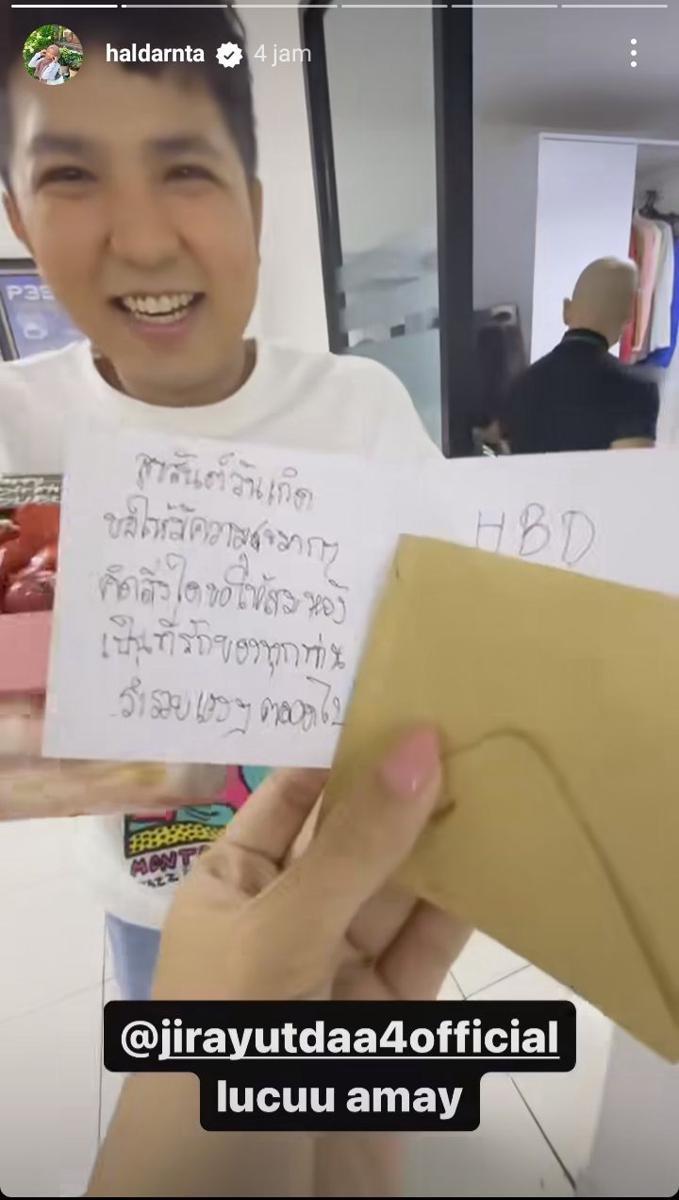 haldarnta 4 jam
P3
สุขสันต์วันเกิด
ขอให้มีความสุขมากๆ
คิดสิ่งใดขอให้สมหวัง
เป็นที่รักของทุกท่าน
ร่ำรวยเฮงๆ ตลอดไป
HBD
MONT
JAZZ
@jirayutdaa4official
lucuu amay